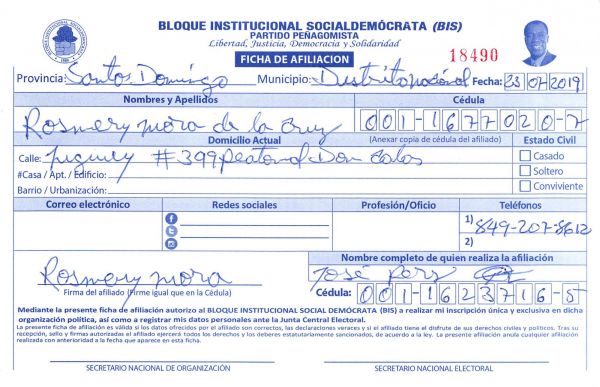 BLOQUE INSTITUCIONAL SOCIALDEMÓCRATA (BIS)
PARTIDO PEÑAGOMISTA
Libertad, Justicia, Democracia y Solidaridad
FICHA DE AFILIACION
18490
Provincia: Santo Domingo Municipio: Distrito nacional Fecha: 23 07 2019
Nombres y Apellidos Cédula
Rosmery mora de la Cruz 001-1677020-7
Domicilio Actual (Anexar copia de cédula del afiliado) Estado Civil
Calle: #399 peatonal Don Carlos Casado
#Casa / Apt. / Edificio: Soltero
Barrio / Urbanización: Conviviente
Correo electrónico Redes sociales Profesión/Oficio Teléfonos
1) 849-207-8612
2)
Nombre completo de quien realiza la afiliación
Rosmery mora José
Firma del afiliado (Firme igual que en la Cédula) Cédula: 001-1623716-5
Mediante la presente ficha de afiliación autorizo al BLOQUE INSTITUCIONAL SOCIAL DEMÓCRATA (BIS) a realizar mi inscripción única y exclusiva en dicha
organización política, así como a registrar mis datos personales ante la Junta Central Electoral.
La presente ficha de afiliación es válida si los datos ofrecidos por el afiliado son correctos, las declaraciones veraces y si el afiliado tiene el disfrute de sus derechos civiles y políticos. Tras su
recepción, sello y firmas autorizadas el afiliado ejercerá todos los derechos y los deberes estatutariamente sancionados, de acuerdo a la ley. La presente afiliación anula cualquier afiliación
realizada con anterioridad a la fecha que aparece en esta ficha.
SECRETARIO NACIONAL DE ORGANIZACIÓN SECRETARIO NACIONAL ELECTORAL